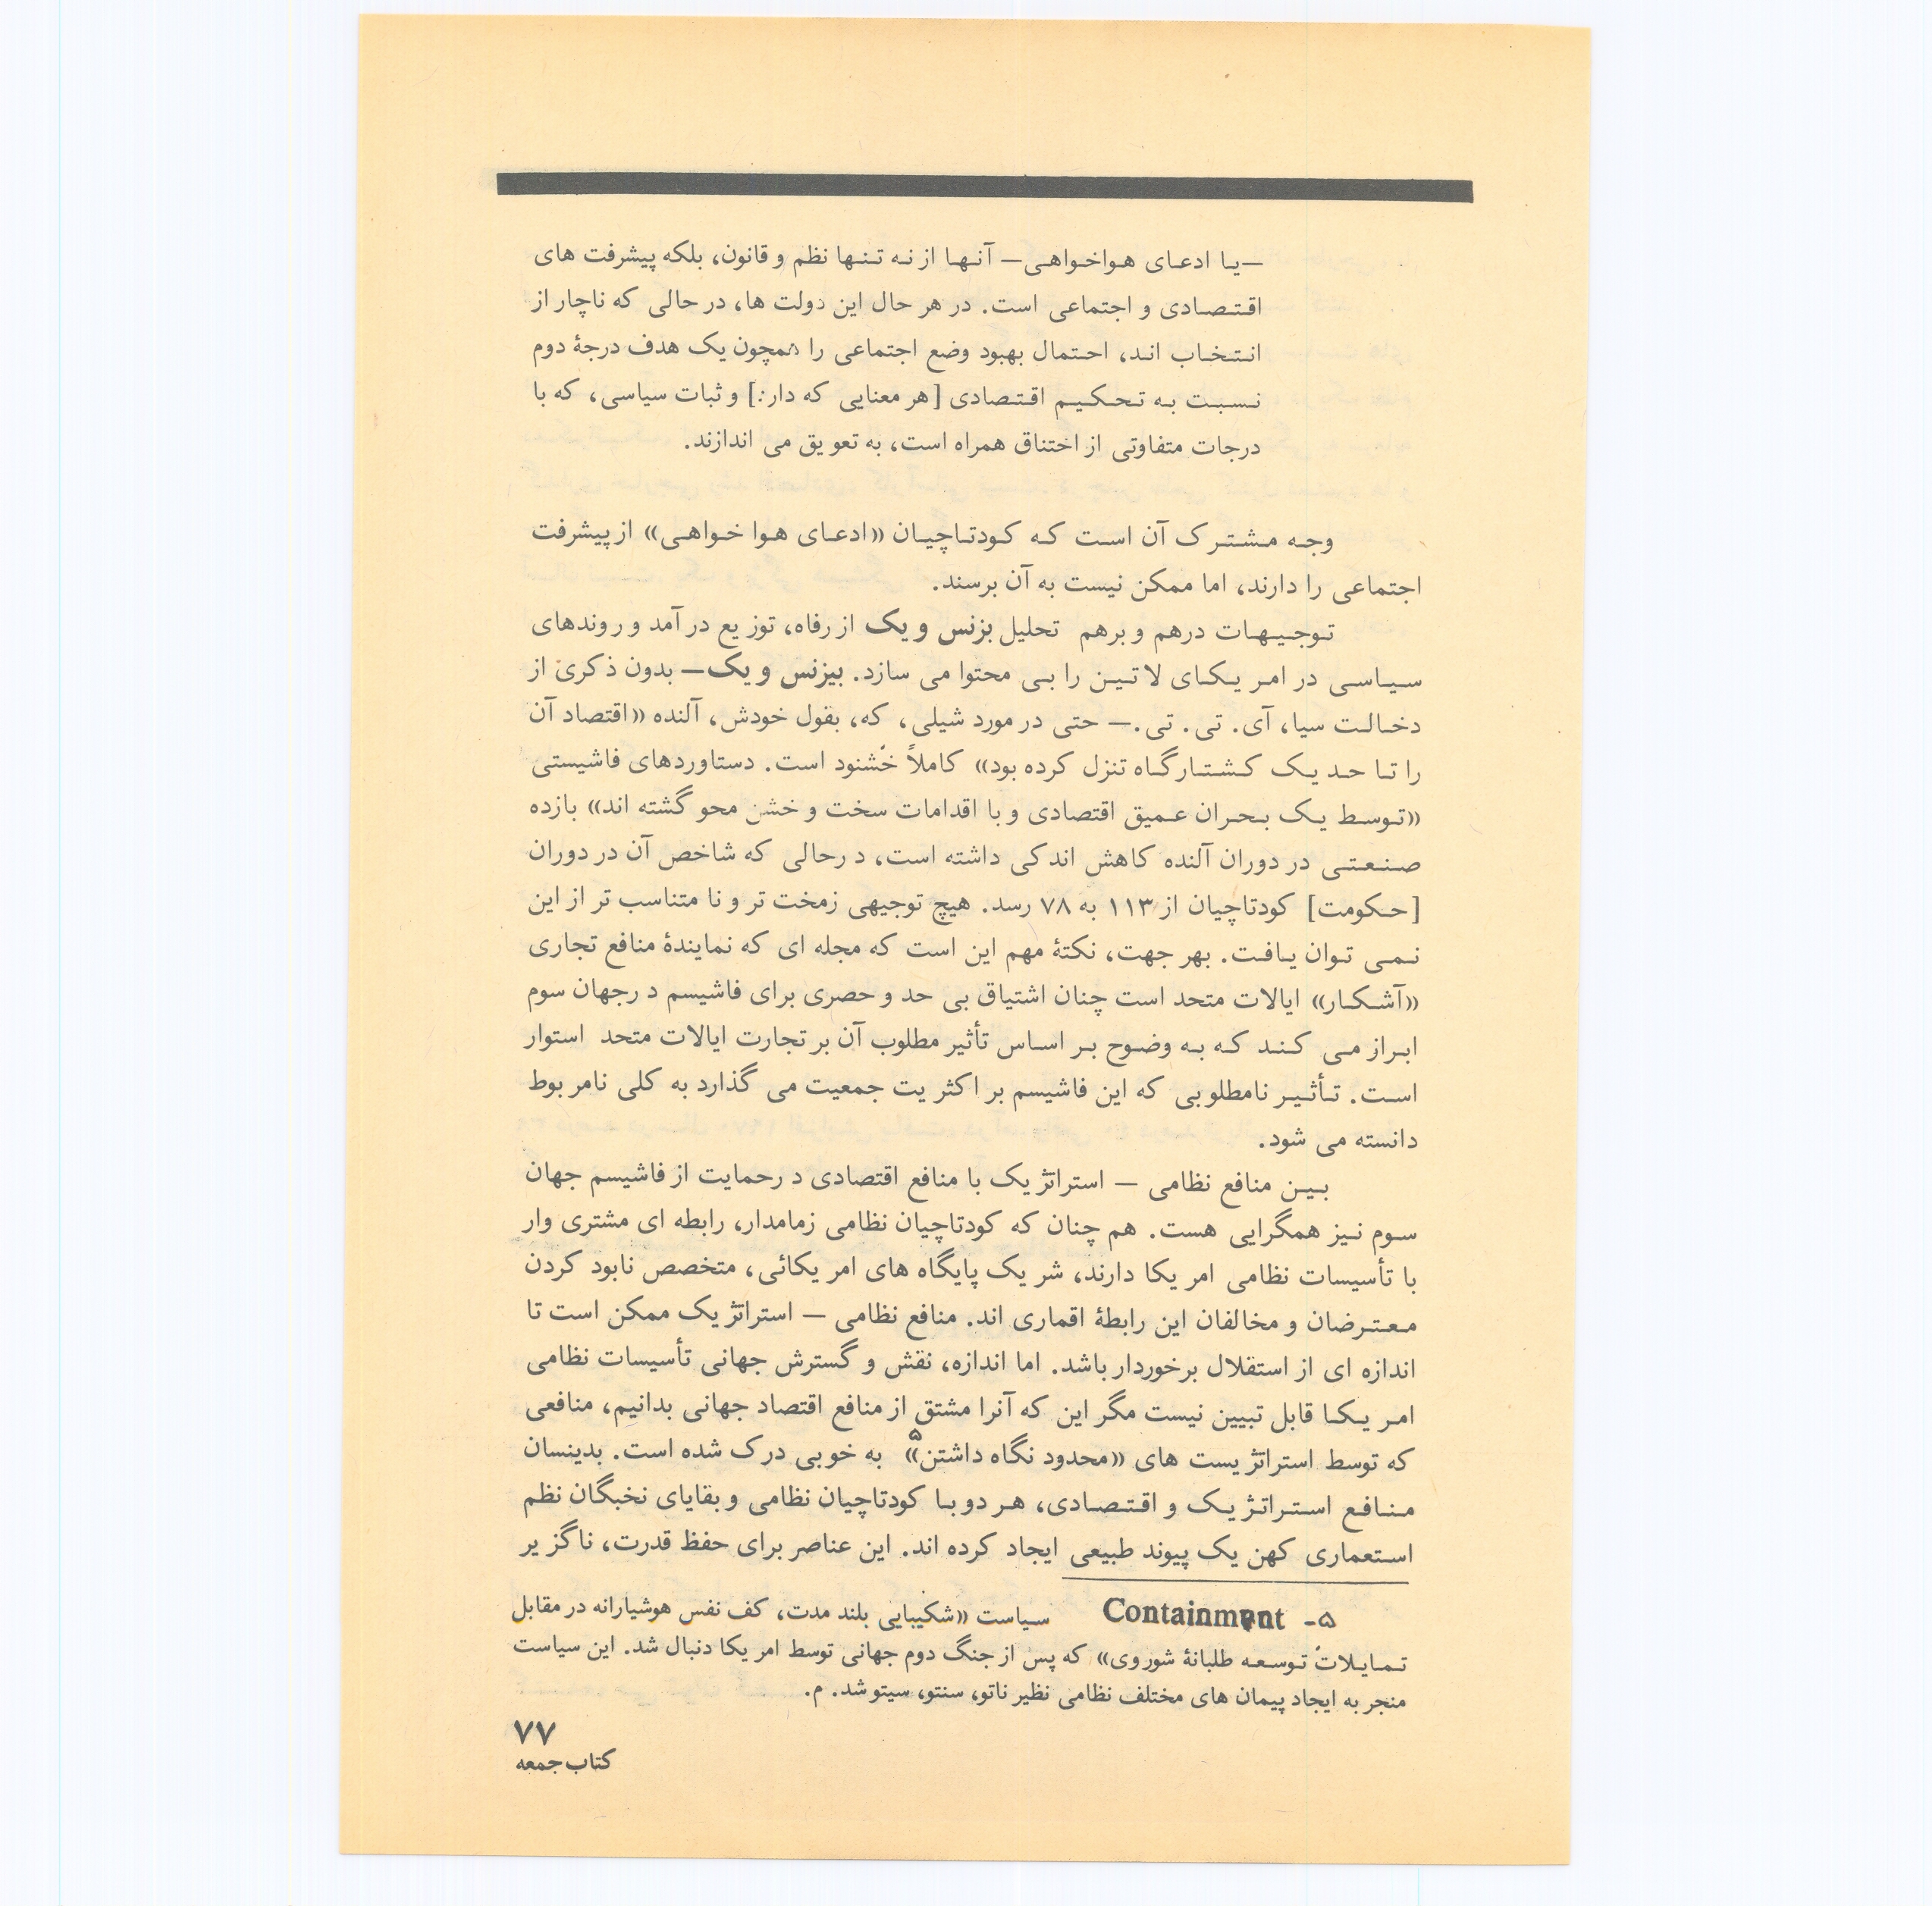 —یا ادعای هواخواهی— آنها از نه تنها نظم و قانون، بلکه پیشرفت های
اقتصادی و اجتماعی است. در هر حال این دولت ها، در حالی که ناچار از
انتخاب اند، احتمال بهبود وضع اجتماعی را همچون یک هدف درجهٔ دوم
نسبت به تحکیم اقتصادی [هر معنایی که دارد] و ثبات سیاسی، که با
درجات متفاوتی از اختناق همراه است، به تعویق می اندازند.
وجه مشترک آن است که کودتاچیان «ادعای هوا خواهی» از پیشرفت
اجتماعی را دارند، اما ممکن نیست به آن برسند.
توجیهات درهم و برهم تحلیل بزنس ویک از رفاه، توزیع درآمد و روندهای
سیاسی در امریکای لاتین را بی محتوا می سازد. بیزنس ویک— بدون ذکری از
دخالت سیا، آی. تی. تی.— حتی در مورد شیلی، که، بقول خودش، آلنده «اقتصاد آن
را تا حد یک کشتارگاه تنزل کرده بود» کاملاً خشنود است. دستاوردهای فاشیستی
«توسط یک بحران عمیق اقتصادی و با اقدامات سخت و خشن محو گشته اند» بازده
صنعتی در دوران آلنده کاهش اندکی داشته است، درحالی که شاخص آن در دوران
[حکومت] کودتاچیان از ۱۱۳ به ۷۸ رسد. هیچ توجیهی زمخت تر و نا متناسب تر از این
نمی توان یافت. بهر جهت، نکتهٔ مهم این است که مجله ای که نمایندهٔ منافع تجاری
«آشکار» ایالات متحد است چنان اشتیاق بی حد و حصری برای فاشیسم درجهان سوم
ابراز می کند که به وضوح بر اساس تأثیر مطلوب آن بر تجارت ایالات متحد استوار
است. تأثیر نامطلوبی که این فاشیسم بر اکثریت جمعیت می گذارد به کلی نامربوط
دانسته می شود.
بین منافع نظامی — استراتژیک با منافع اقتصادی درحمایت از فاشیسم جهان
سوم نیز همگرایی هست. هم چنان که کودتاچیان نظامی زمامدار، رابطه ای مشتری وار
با تأسیسات نظامی امریکا دارند، شریک پایگاه های امریکائی، متخصص نابود کردن
معترضان و مخالفان این رابطهٔ اقماری اند. منافع نظامی — استراتژیک ممکن است تا
اندازه ای از استقلال برخوردار باشد. اما اندازه، نقش و گسترش جهانی تأسیسات نظامی
امریکا قابل تبیین نیست مگر این که آنرا مشتق از منافع اقتصاد جهانی بدانیم، منافعی
که توسط استراتژیست های «محدود نگاه داشتن»۵ به خوبی درک شده است. بدینسان
منافع استراتژیک و اقتصادی، هر دو با کودتاچیان نظامی و بقایای نخبگان نظم
استعماری کهن یک پیوند طبیعی ایجاد کرده اند. این عناصر برای حفظ قدرت، ناگزیر
۵- Containment سیاست «شکیبایی بلند مدت، کف نفس هوشیارانه در مقابل
تمایلات توسعه طلبانهٔ شوروی» که پس از جنگ دوم جهانی توسط امریکا دنبال شد. این سیاست
منجر به ایجاد پیمان های مختلف نظامی نظیر ناتو، سنتو، سیتو شد. م.
۷۷
کتاب جمعه